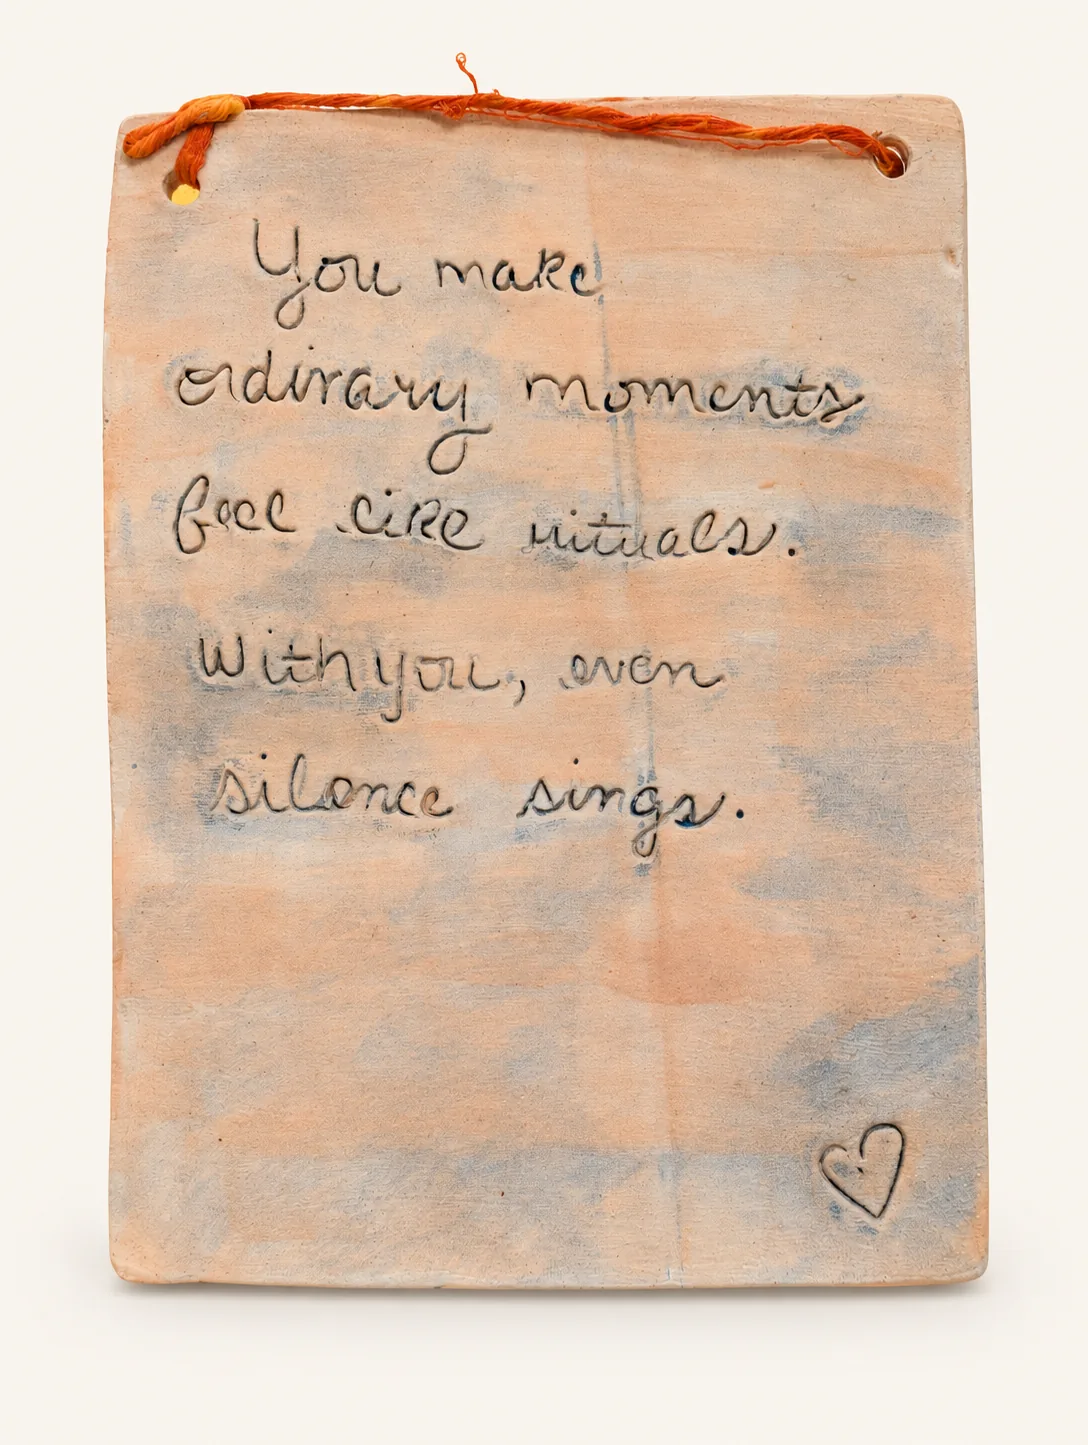 You make
ordinary moments
feel like rituals.
With you, even
silence sings.